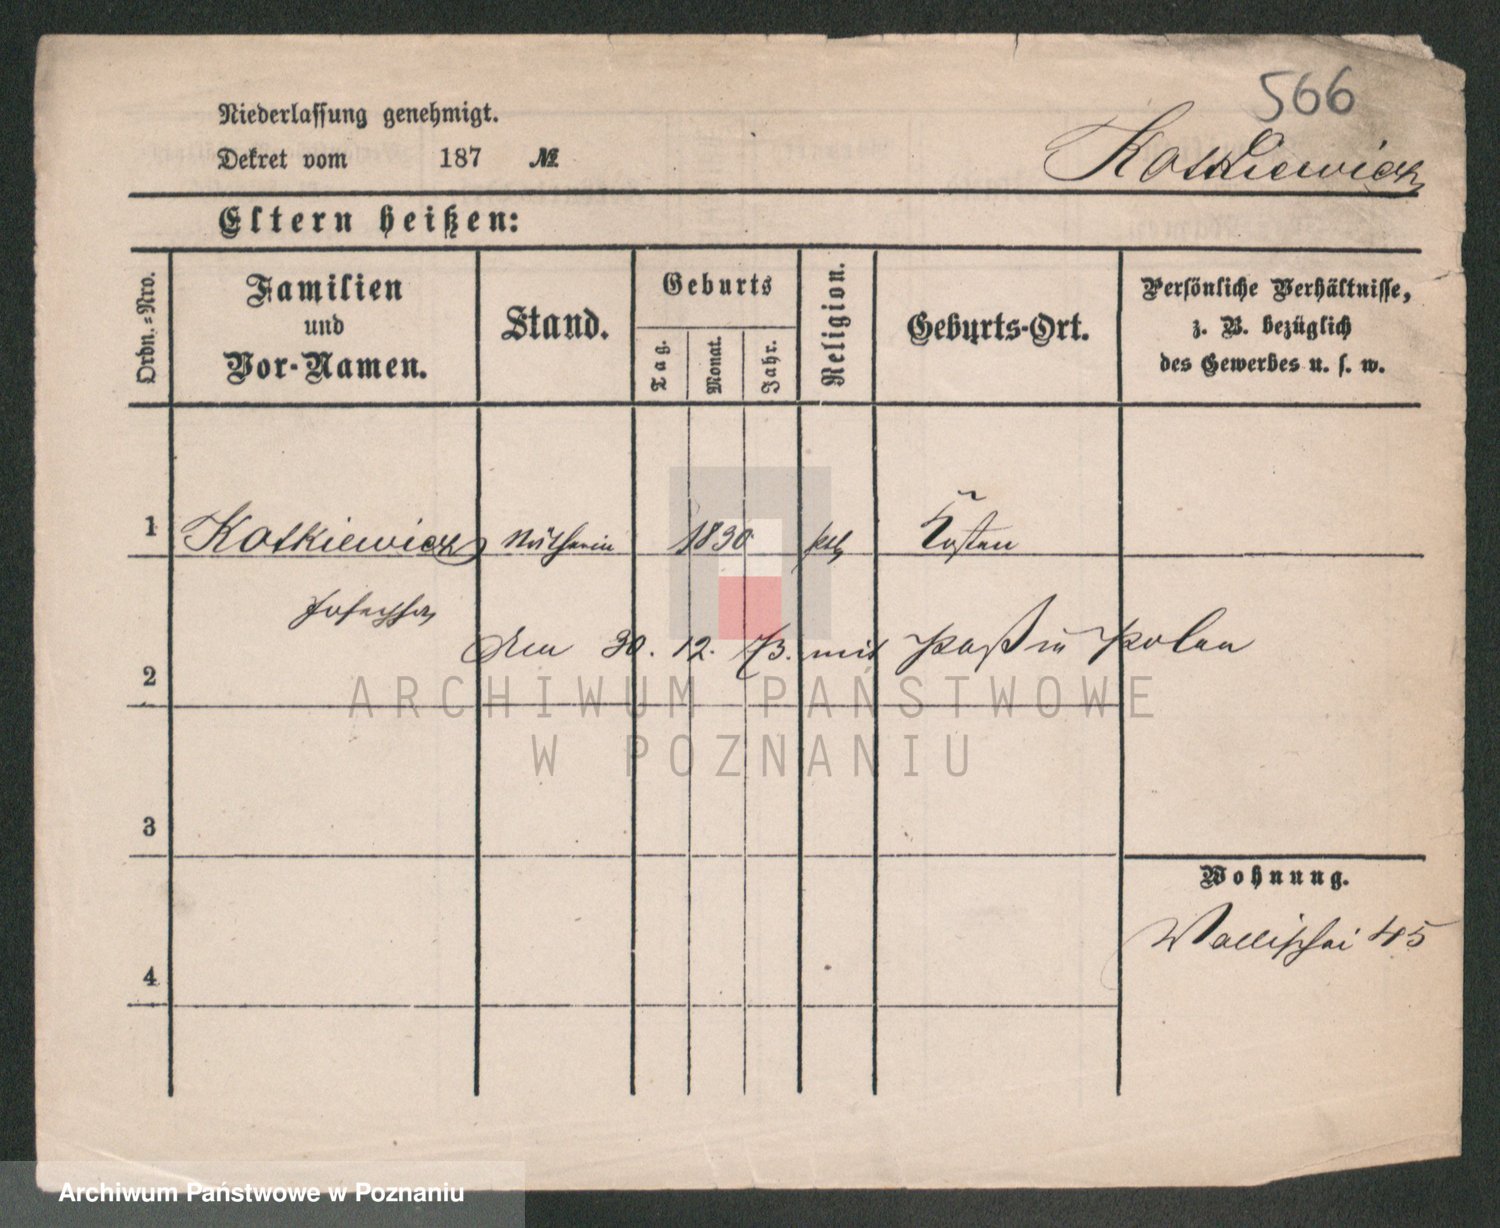 566
Niederlassung genehmigt.
Dekret vom 187 №
Kotkiewicz
Eltern heißen:
Ordn.-Nro.
Familien
und
Vor-Namen.
Stand.
Geburts
Tag.
Monat.
Jahr.
Religion.
Geburts-Ort.
Persönliche Verhältnisse,
z. B. bezüglich
des Gewerbes u. s. w.
1 Kotkiewicz Näherin 1830 kth Kosten
Josepha
den 30. 12. 73. mit Paß in Polen
2
3
4
Wohnung.
Wallischei 45
ARCHIWUM PAŃSTWOWE
W POZNANIU
Archiwum Państwowe w Poznaniu